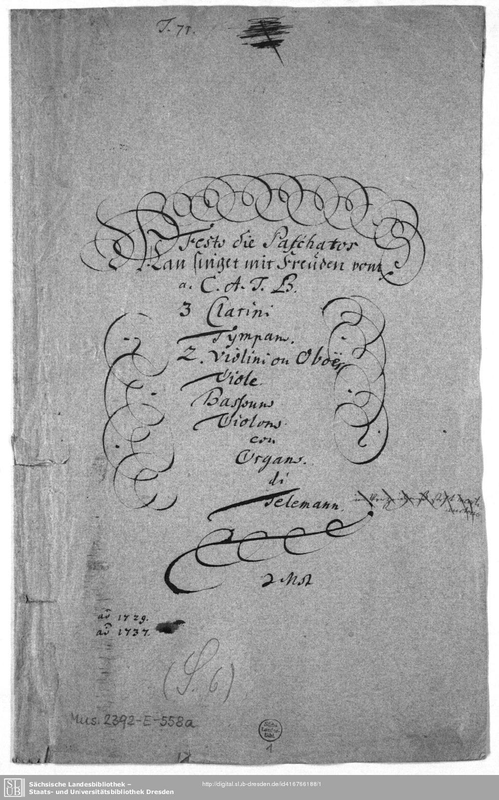 T. 71.
Festo die Paschatos
Man singet mit Freuden vom
a. C. A. T. B.
3 Clarini
Tympan.
2. Violini ou Oboë
Viole
Bassuns
Violons
con
Organ.
di
Telemann
ao 1729.
ao 1737.
(S. 6)
Mus. 2392-E-558a
1
SLUB
Sächsische Landesbibliothek –
Staats- und Universitätsbibliothek Dresden
http://digital.slub-dresden.de/id416766188/1